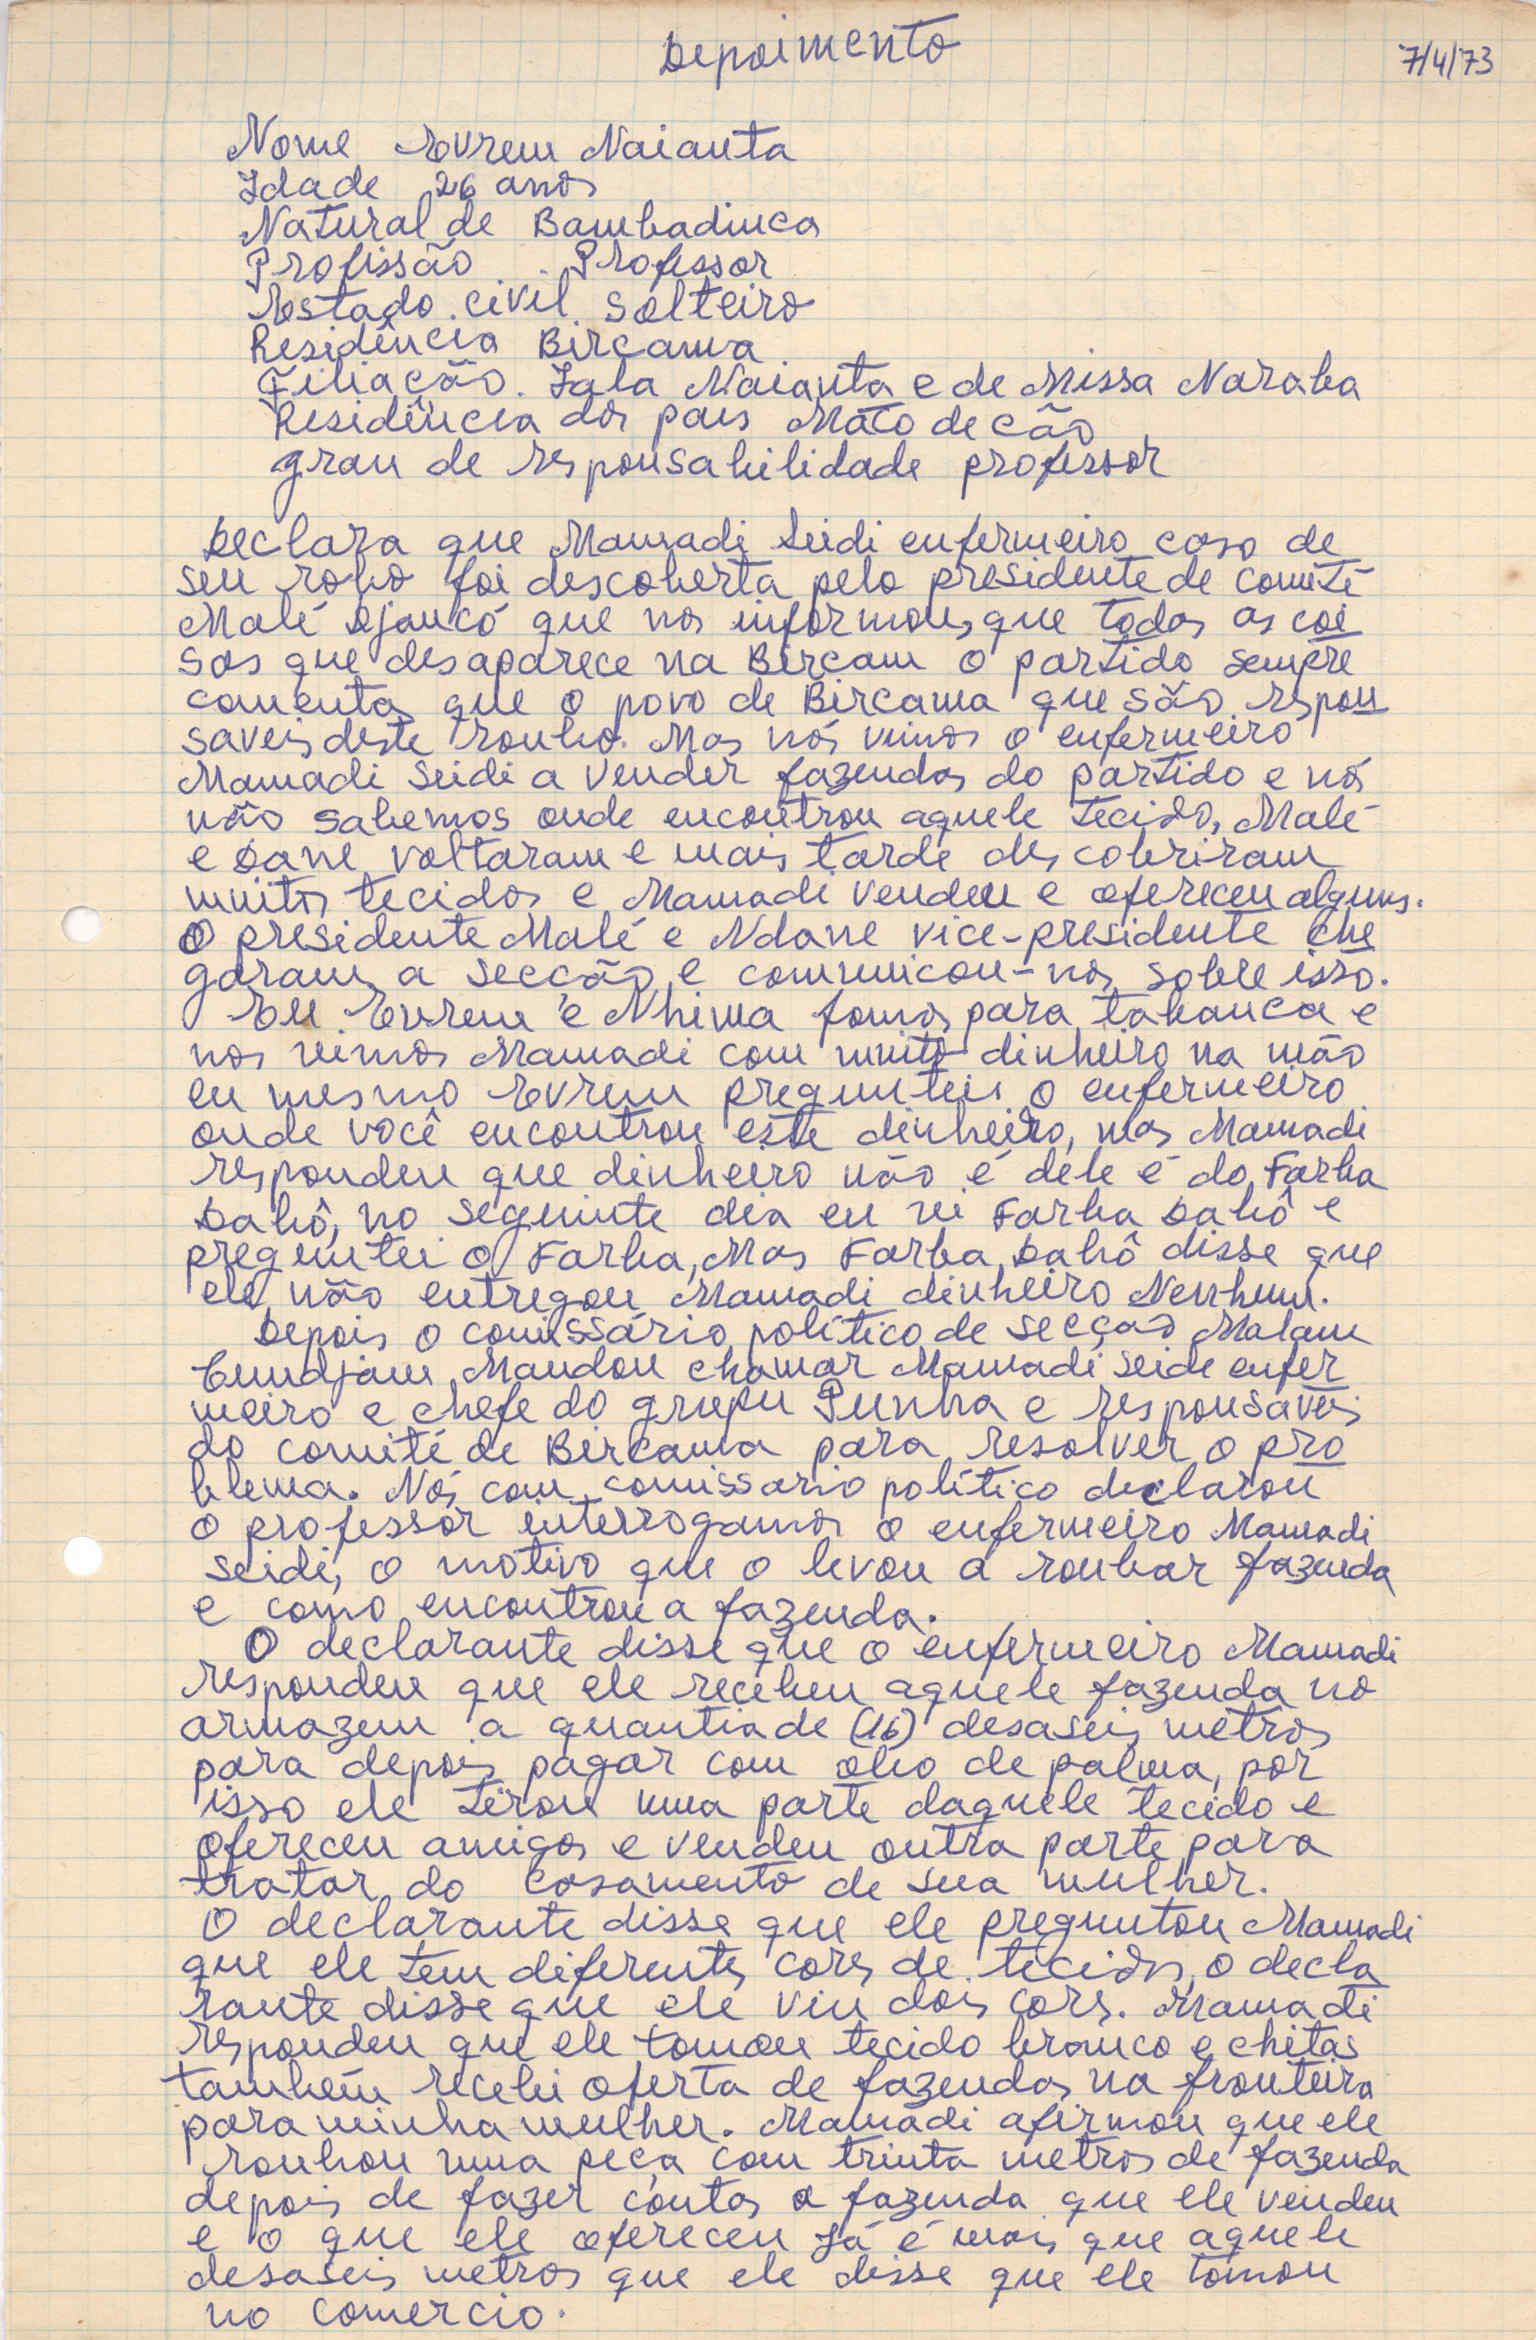 Depoimento
7/4/73
Nome Evrem Naianta
Idade 26 anos
Natural de Bambadinca
Profissão Professor
Estado civil solteiro
Residência Bircama
Filiação. Jala Naianta e de Missa Naraba
Residência dos pais Mato de cão
grau de responsabilidade professor
Declara que Mamadi Seidi enfermeiro caso de
seu robo foi descoberta pelo presidente de comité
Malé Djancó que nos informou, que todas as coi
sas que desaparece na Bircam o partido sempre
comenta que o povo de Bircama que são respon
saveis deste roubo. Mas nós vimos o enfermeiro
Mamadi Seidi a vender fazendas do partido e nós
não sabemos onde encontrou aquele tecido, Malé
e Dane voltaram e mais tarde descobriram
muitos tecidos e Mamadi vendeu e ofereceu alguns.
O presidente Malé e Ndane vice-presidente che
garam a secção e comunicou-nos sobre isso.
Eu Evrem e Nhima fomos para tabanca e
nos vimos Mamadi com muito dinheiro na mão
eu mesmo Evrem pregunteis o enfermeiro
onde você encontrou este dinheiro, mas Mamadi
respondeu que dinheiro não é dele é do Farba
Dabô, no seguinte dia eu vi Farba Dabô e
preguntei o Farba, Mas Farba Dabô disse que
ele não entregou Mamadi dinheiro Nenhum.
Depois o comissário político de secção Malam
Cundjam Mandou chamar Mamadi Seide enfer
meiro e chefe do grupu Punha e responsaveis
do comité de Bircama para resolver o pro
blema. Nós com comissario político declarou
o professor interrogamos o enfermeiro Mamadi
Seidi, o motivo que o levou a roubar fazenda
e como encontrou a fazenda.
O declarante disse que o enfermeiro Mamadi
respondeu que ele recebeu aquele fazenda no
armazem a quantia de (16) desaseis metros
para depois pagar com oleo de palma, por
isso ele tirou uma parte daquele tecido e
ofereceu amigos e vendeu outra parte para
tratar do casamento de sua mulher.
O declarante disse que ele preguntou Mamadi
que ele tem diferentes cores de tecidos, o decla
rante disse que ele viu dois cores. Mamadi
respondeu que ele tomou tecido branco e chitas
também recebi oferta de fazendas na fronteira
para minha mulher. Mamadi afirmou que ele
roubou uma peça com trinta metros de fazenda
depois de fazer contas a fazenda que ele vendeu
e o que ele ofereceu Já é mais que aquele
desaseis metros que ele disse que ele tomou
no comercio.